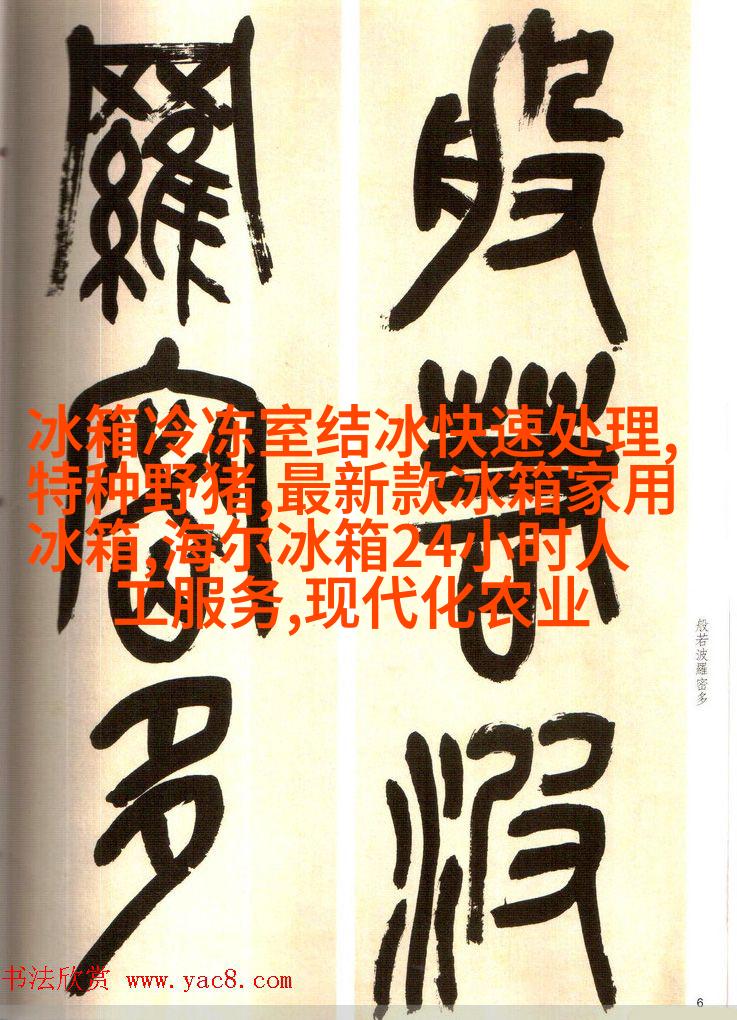 般若波
羅密多
冰箱冷冻室结冰快速处理,
特种野猪,最新款冰箱家用
冰箱,海尔冰箱24小时人
工服务,现代化农业
般若波羅密多
书法欣赏 www.yac8.com
6